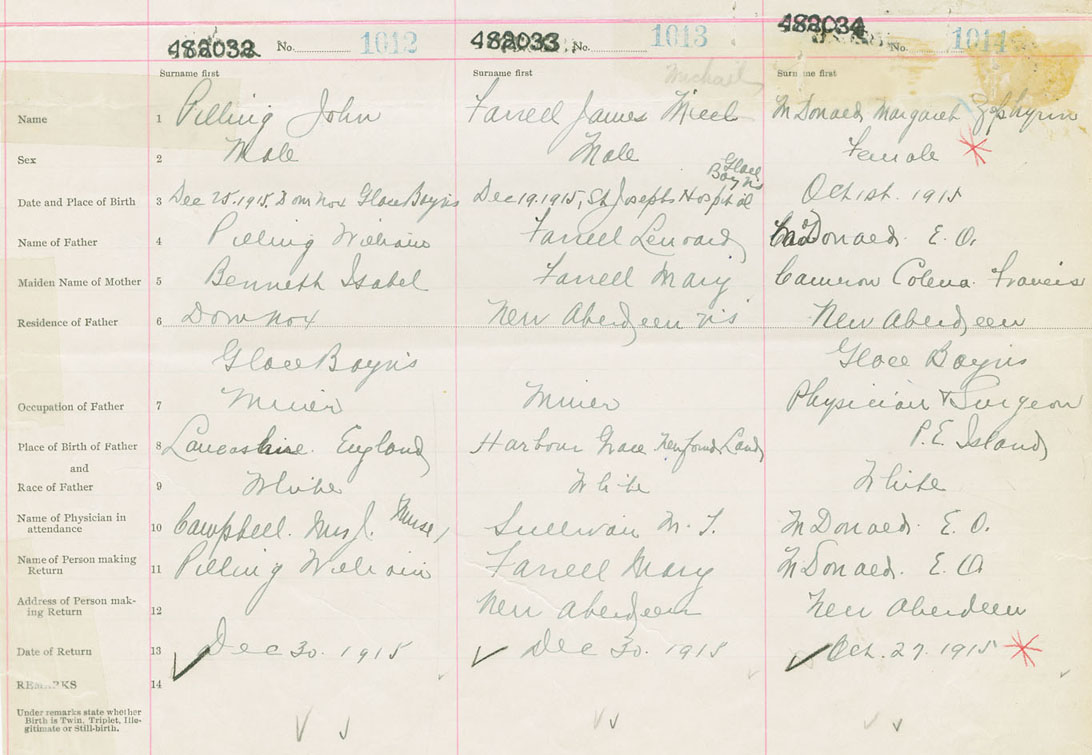 482032 No. 1012 482033 No. 1013 482034 No. 1014
Surname first Surname first Michael Surname first
Name 1 Pilling John Farrell James Micel McDonald Margaret Zephyrin
Sex 2 Male Male Female
Glace Bay NS
Date and Place of Birth 3 Dec 25. 1915. Dominox Glace Bay NS Dec 19. 1915, St Josephs Hospital Oct 1st. 1915
Name of Father 4 Pilling William Farrell Lenoard McDonald. E. O.
Maiden Name of Mother 5 Benneth Isabel Farrell Mary Cameron Colena Francis
Residence of Father 6 Domnox New Aberdeen NS New Aberdeen
Glace Bay NS Glace Bay NS
Occupation of Father 7 Miner Miner Physician & Surgeon
Place of Birth of Father 8 Lancashire. England Harbour Grace Newfound Land P. E. Island
and
Race of Father 9 White White White
Name of Physician in
attendance 10 Campbell. Mrs J. Nurse Sullivan M. T. McDonald. E. O.
Name of Person making
Return 11 Pilling William Farrell Mary McDonald. E. O.
Address of Person mak-
ing Return 12 New Aberdeen New Aberdeen
Date of Return 13 Dec 30. 1915 Dec 30. 1915 Oct. 27. 1915
REMARKS 14
Under remarks state whether
Birth is Twin, Triplet, Ille-
gitimate or Still-birth.